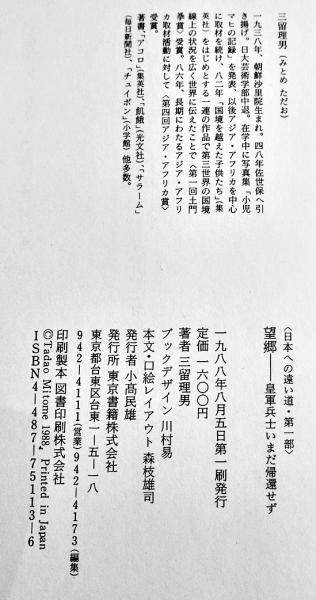 三留理男(みとめ ただお)
一九三八年、朝鮮沙里院生まれ。四八年佐世保へ引
き揚げ。日大芸術学部中退。在学中に写真集「小児
マヒの記録」を発表、以後アジア・アフリカを中心
に取材を続け、八二年「国境を越えた子供たち」(集
英社)をはじめとする一連の作品で第三世界の国境
線上の状況を広く世界に伝えたことで〈第一回土門
拳賞〉受賞。八六年、長期にわたるアジア・アフリ
カ取材活動に対して〈第四回アジア・アフリカ賞〉
受賞。
著書、「アコロ」(集英社)、「飢餓」(光文社)、「サラーム」
(毎日新聞社)、「チュイポン」(小学館)他多数。
〈日本への遠い道・第一部〉
望郷——皇軍兵士いまだ帰還せず
一九八八年八月五日第一刷発行
定価 一六〇〇円
著者 三留理男
ブックデザイン 川村易
本文・口絵レイアウト 森枝雄司
発行者 小髙民雄
発行所 東京書籍株式会社
東京都台東区台東一—五—一八
942—4111(営業)942—4173(編集)
印刷製本 図書印刷株式会社
©Tadao Mitome 1988, Printed in Japan
ISBN4—487—75113—6